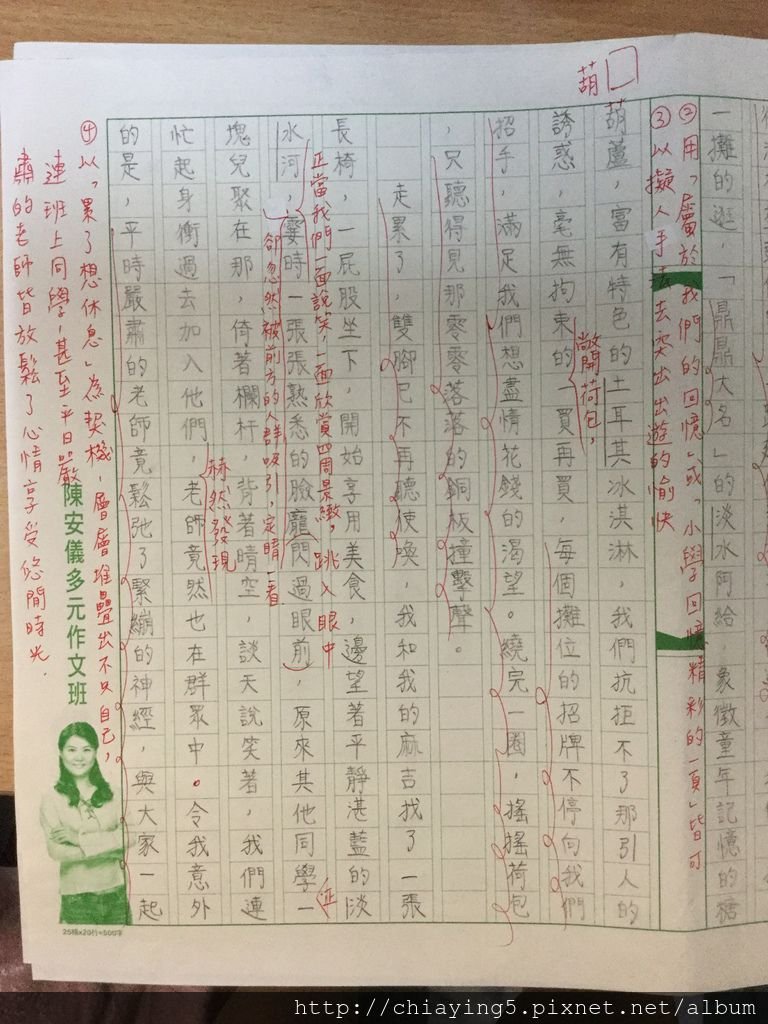 一攤的逛,「鼎鼎大名」的淡水阿給,象徵童年記憶的糖
②用「屬於我們的回憶」或「小學回憶精彩的一頁」皆可
③以擬人手法去突出出遊的愉快
葫
葫蘆,富有特色的土耳其冰淇淋,我們抗拒不了那引人的
誘惑,毫無拘束的一買再買,每個攤位的招牌不停向我們
敞開荷包,
招手,滿足我們想盡情花錢的渴望。繞完一圈,搖搖荷包
,只聽得見那零零落落的銅板撞擊聲。
走累了,雙腳已不再聽使喚,我和我的麻吉找了一張
長椅,一屁股坐下,開始享用美食,邊望著平靜湛藍的淡
正當我們一面說笑,一面欣賞四周景緻,跳入眼中
水河,霎時一張張熟悉的臉龐閃過眼前,原來其他同學一
正
卻忽然被前方的人群吸引,定睛一看
塊兒聚在那,倚著欄杆,背著晴空,談天說笑著,我們連
赫然發現
忙起身衝過去加入他們,老師竟然也在群眾中。令我意外
的是,平時嚴肅的老師竟鬆弛了緊繃的神經,與大家一起
④以「累了想休息」為契機,層層堆疊出不只自己,
連班上同學,甚至平日嚴
肅的老師皆放鬆了心情享受悠閒時光.
陳安儀多元作文班
25格x20行=500字
http://chiaying5.pixnet.net/album